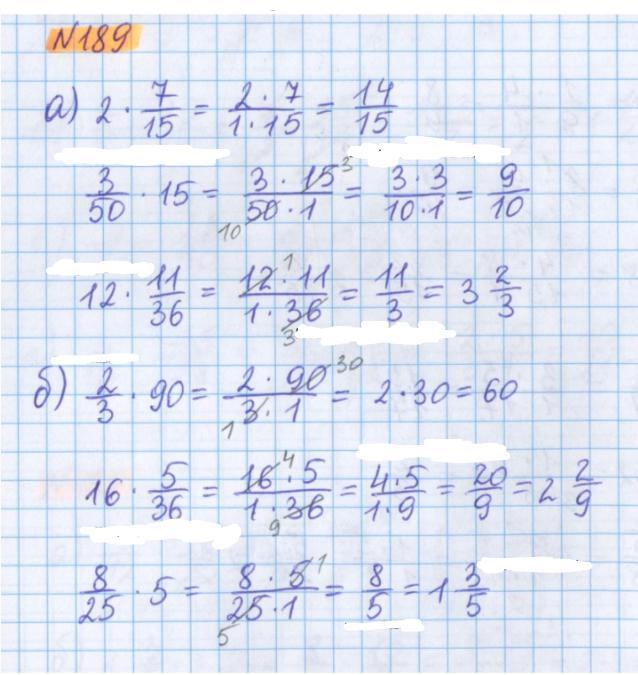 N189
а) 2 · 7/15 = 2 · 7/1 · 15 = 14/15
3/50 · 15 = 3 · 15 3/10 50 · 1 = 3 · 3/10 · 1 = 9/10
12 · 11/36 = 12 1 · 11/1 · 36 3 = 11/3 = 3 2/3
б) 2/3 · 90 = 2 · 90 30/1 3 · 1 = 2 · 30 = 60
16 · 5/36 = 16 4 · 5/1 · 36 9 = 4 · 5/1 · 9 = 20/9 = 2 2/9
8/25 · 5 = 8 · 5 1/5 25 · 1 = 8/5 = 1 3/5